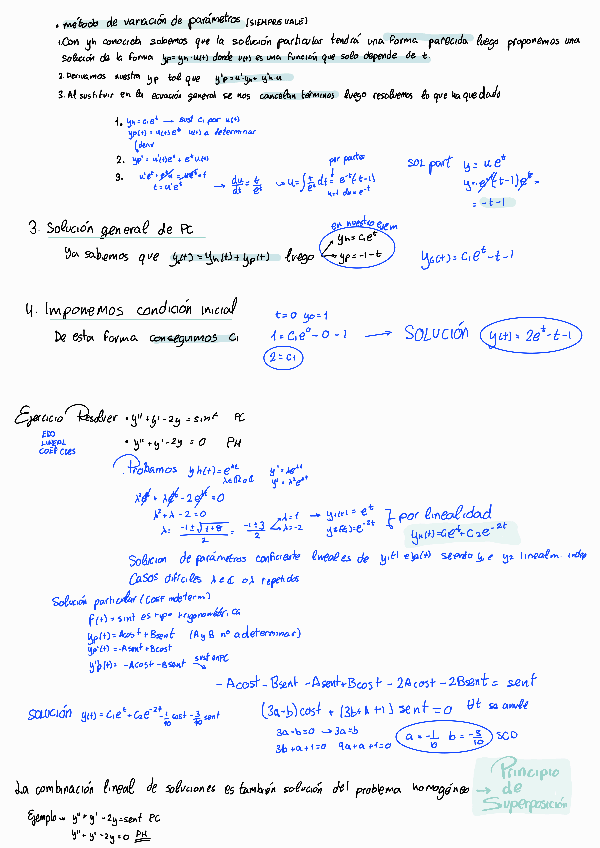 • método de variación de parámetros (SIEMPRE VALE)
1. Con yh conocida sabemos que la solución particular tendrá una forma parecida luego proponemos una
solución de la forma yp=yh·u(t) donde u(t) es una función que solo depende de t.
2. Derivamos nuestra yp tal que y'p=u'·yh+y'h·u
3. Al sustituir en la ecuación general se nos cancelan términos luego resolvemos lo que ha quedado
1. yh=c₁e^t → sust c₁ por u(t)
yp(t)=u(t)e^t u(t) a determinar
2. yp'=u'(t)e^t+e^t u(t)
3. u'e^t+e^t u = ue^t+t
t=u'e^t → du/dt = t/e^t → u=∫ t/e^t dt = e^-t(-t-1)
por partes
sol part y=u e^t
y=e^-t(-t-1)e^t=
= -t-1
3. Solución general de PC
en nuestro ejem
Ya sabemos que yg(t)=yh(t)+yp(t) luego yh=c₁e^t yp=-1-t yg(t)=c₁e^t-t-1
4. Imponemos condición inicial
De esta forma conseguimos c₁
t=0 y0=1
1=c₁e^0-0-1 → SOLUCIÓN y(t)=2e^t-t-1
2=c₁
Ejercicio Resolver • y''+y'-2y=sint PC
EDO
LINEAL
COEF CTES
• y''+y'-2y=0 PH
Probamos yh(t)=e^λt y'=λe^λt
λ∈R o C y''=λ²e^λt
λ²e^λt+λe^λt-2e^λt=0
λ²+λ-2=0
λ= -1±√1+8 / 2 = -1±3 / 2 λ=1 λ=-2 → y1(t)=e^t y2(t)=e^-2t } por linealidad
yh(t)=c₁e^t+c₂e^-2t
Solucion de parámetros coeficiente lineales de y1(t) e y2(t) siendo y1 e y2 linealm indep
Casos difíciles λ∈C o λ repetidos
Solución particular (coef indeterm)
f(t)=sint es tipo trigonométrica
yp(t)=Acost+Bsent (A y B nº a determinar)
yp'(t)=-Asent+Bcost
y''p(t)=-Acost-Bsent sust en PC
-Acost-Bsent-Asent+Bcost-2Acost-2Bsent=sent
SOLUCIÓN y(t)=c₁e^t+c₂e^-2t-1/10 cost-3/10 sent
(3a-b)cost+(3b+A+1)sent=0 ∀t se anule
3a-b=0 → 3a=b
3b+a+1=0 9a+a+1=0 a=-1/10 b=-3/10 SCD
La combinación lineal de soluciones es también solución del problema homogéneo →
Principio
de
Superposición
Ejemplo → y''+y'-2y=sent PC
y''+y'-2y=0 PH